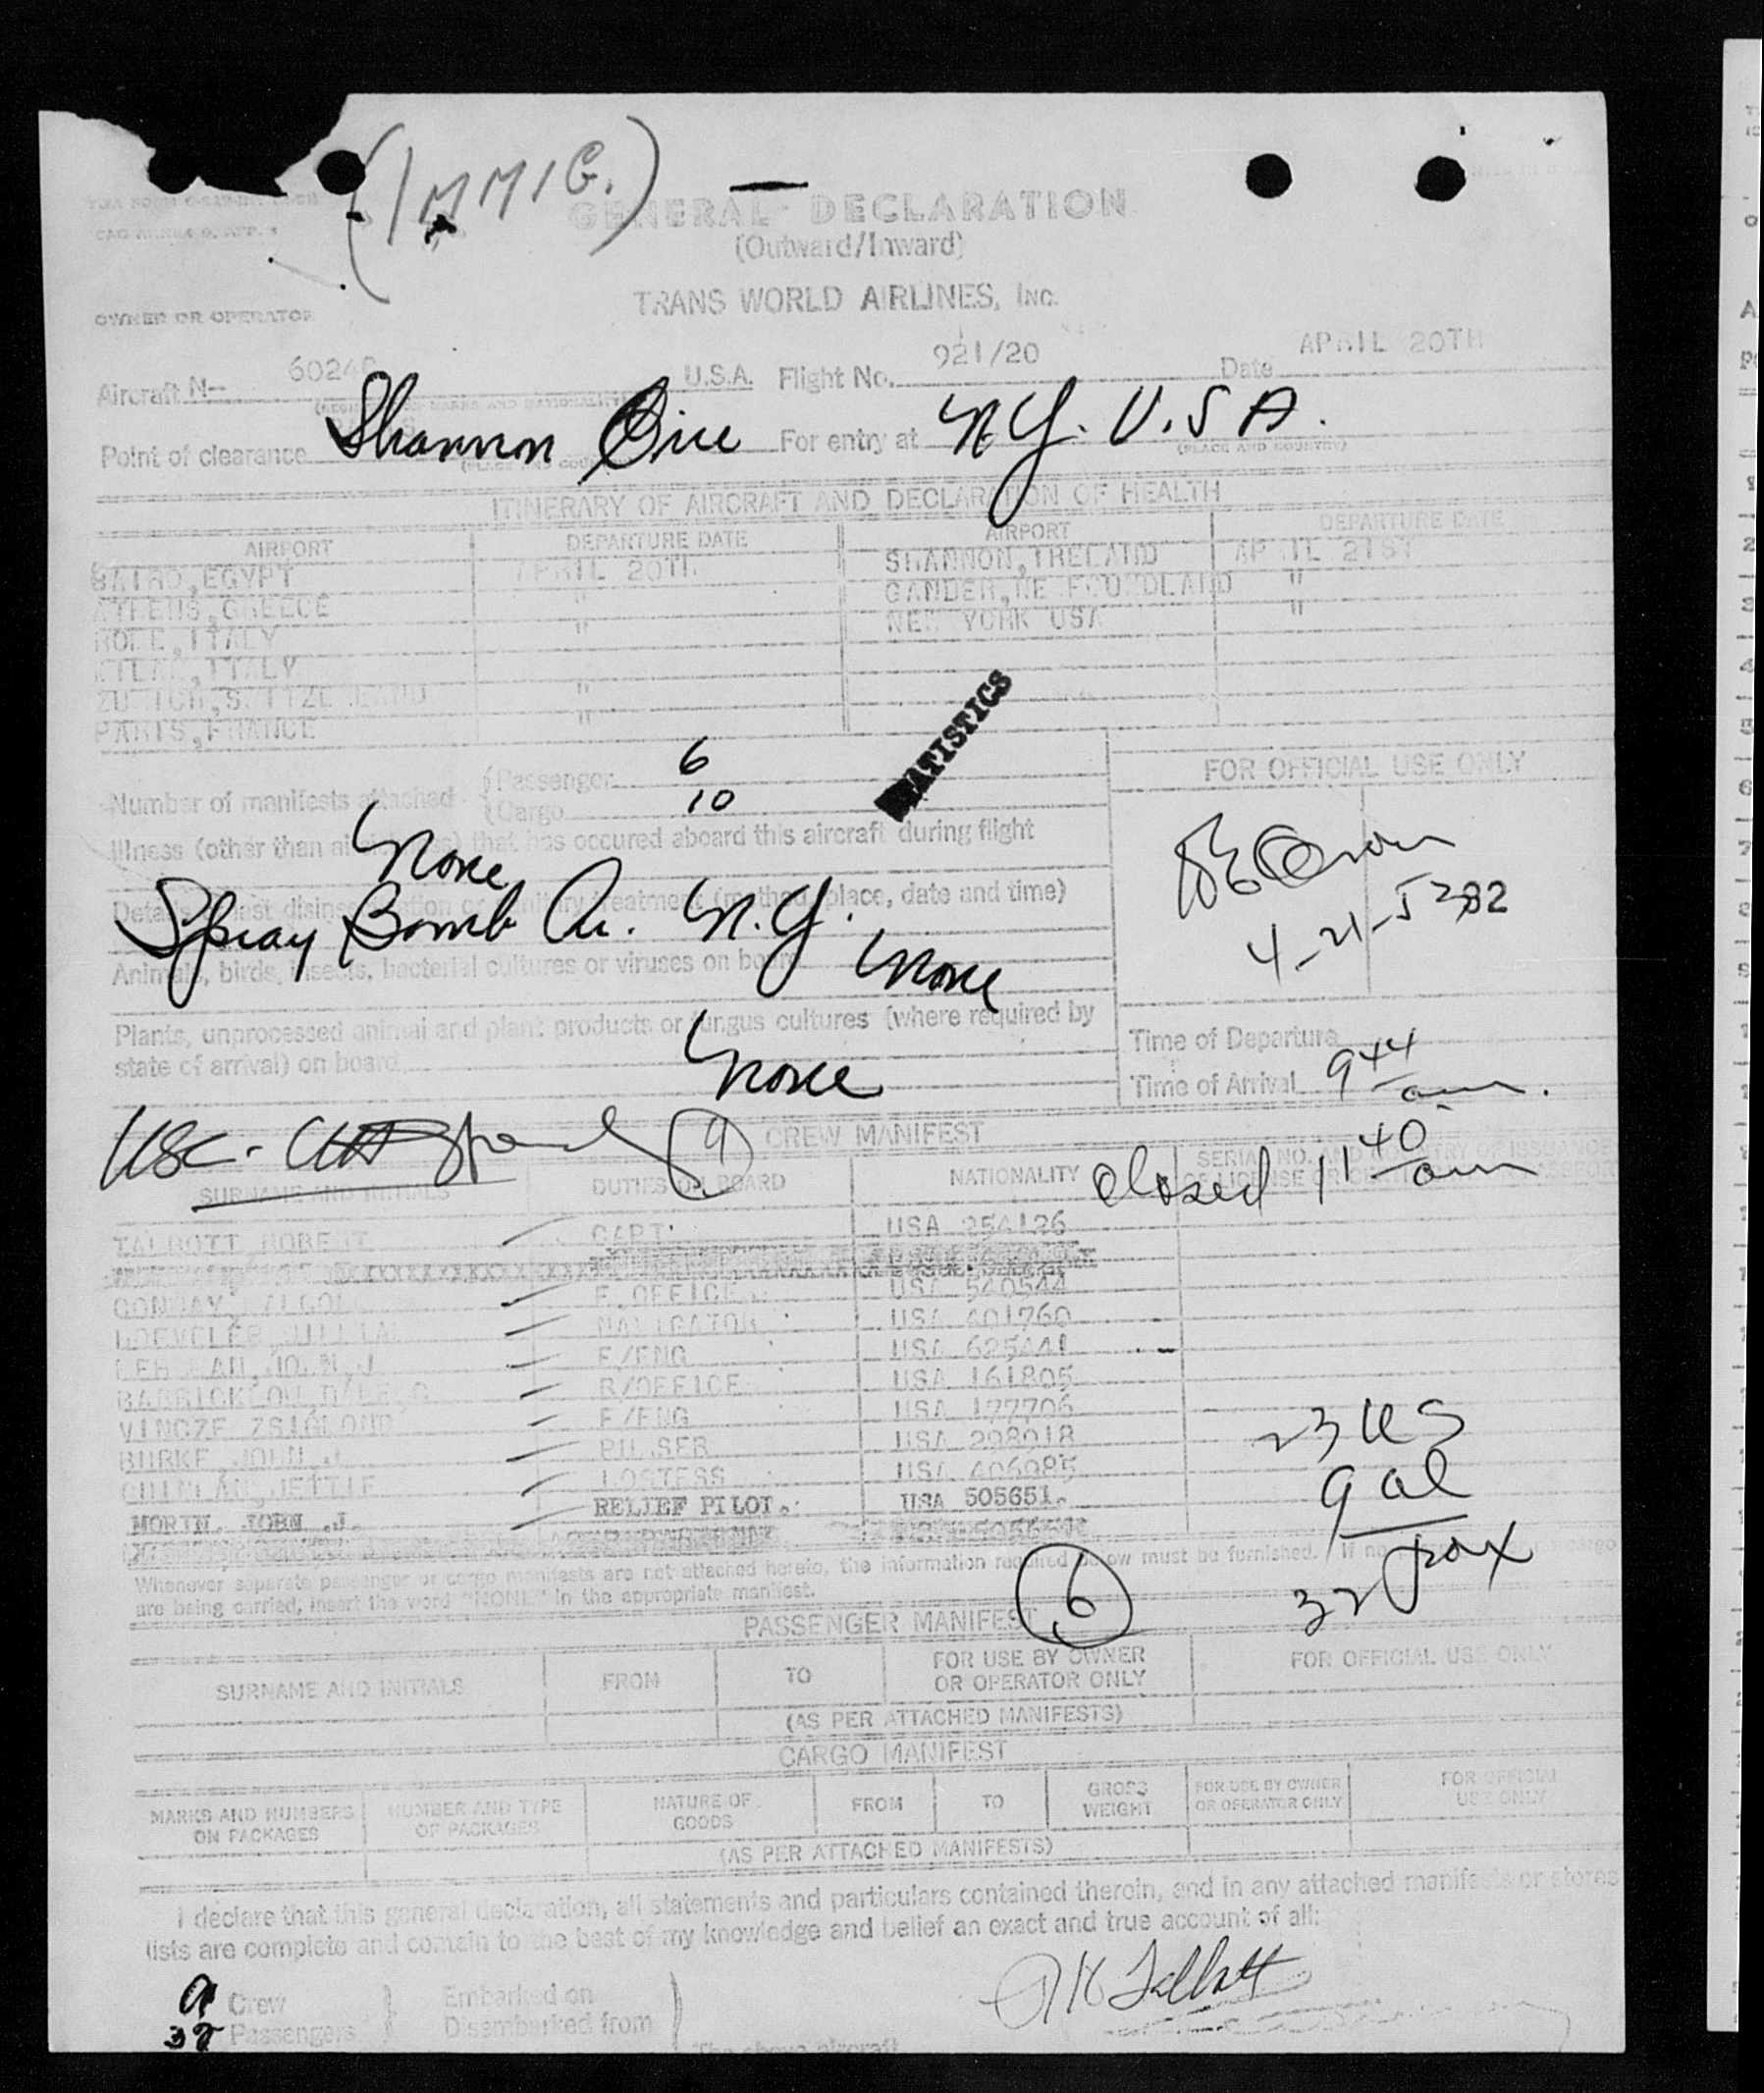 (IMMIG.)
GENERAL DECLARATION
(Outward/Inward)
TRANS WORLD AIRLINES, INC.
OWNER OR OPERATOR
Aircraft N- U.S.A. Flight No. 921/20 Date APRIL 20TH
Point of clearance Shannon Eire For entry at N.Y. U.S.A.
(PLACE AND COUNTRY)
ITINERARY OF AIRCRAFT AND DECLARATION OF HEALTH
AIRPORT DEPARTURE DATE AIRPORT DEPARTURE DATE
EGYPT APRIL 20TH SHANNON, IRELAND APRIL 21ST
ATHENS, GREECE " GANDER, NEWFOUNDLAND "
ROME, ITALY " NEW YORK USA "
MILAN, ITALY
ZURICH, SWITZERLAND "
PARIS, FRANCE "
STATISTICS
Number of manifests attached (Passenger 6
(Cargo 10
FOR OFFICIAL USE ONLY
Illness (other than airsickness) that has occured aboard this aircraft during flight
None
Details of last disinsectization or sanitary treatment (method, place, date and time)
Spray Bomb Ar. N.Y.
4-21-52
Animals, birds, insects, bacterial cultures or viruses on board None
Plants, unprocessed animal and plant products or fungus cultures (where required by
state of arrival) on board None
Time of Departure
Time of Arrival 9 44 am.
USC. (9) CREW MANIFEST
closed 11 40 am
SURNAME AND INITIALS DUTIES ON BOARD NATIONALITY
TALBOTT ROBERT CAPT. USA 254126
F. OFFICER USA 540544
NAVIGATOR USA 401760
F/ENG USA 625441
R/OFFICER USA 161805
VINCZE ZSIGMOND F/ENG USA 177706
BURKE JOHN J. PURSER USA 298918
QUINLAN, JETTIE HOSTESS USA 406985
MORIN. JOHN .J. RELIEF PILOT. USA 505651.
23 US
9 al
32 pax
Whenever separate passenger or cargo manifests are not attached hereto, the information required below must be furnished. If no cargo
are being carried, insert the word "NONE" in the appropriate manifest.
PASSENGER MANIFEST 6
SURNAME AND INITIALS FROM TO FOR USE BY OWNER OR OPERATOR ONLY FOR OFFICIAL USE ONLY
(AS PER ATTACHED MANIFESTS)
CARGO MANIFEST
MARKS AND NUMBERS ON PACKAGES NUMBER AND TYPE OF PACKAGES NATURE OF GOODS FROM TO GROSS WEIGHT FOR USE BY OWNER OR OPERATOR ONLY FOR OFFICIAL USE ONLY
(AS PER ATTACHED MANIFESTS)
I declare that this general declaration, all statements and particulars contained therein, and in any attached manifests or stores
lists are complete and contain to the best of my knowledge and belief an exact and true account of all:
9 Crew Embarked on
32 Passengers Disembarked from
The above aircraft